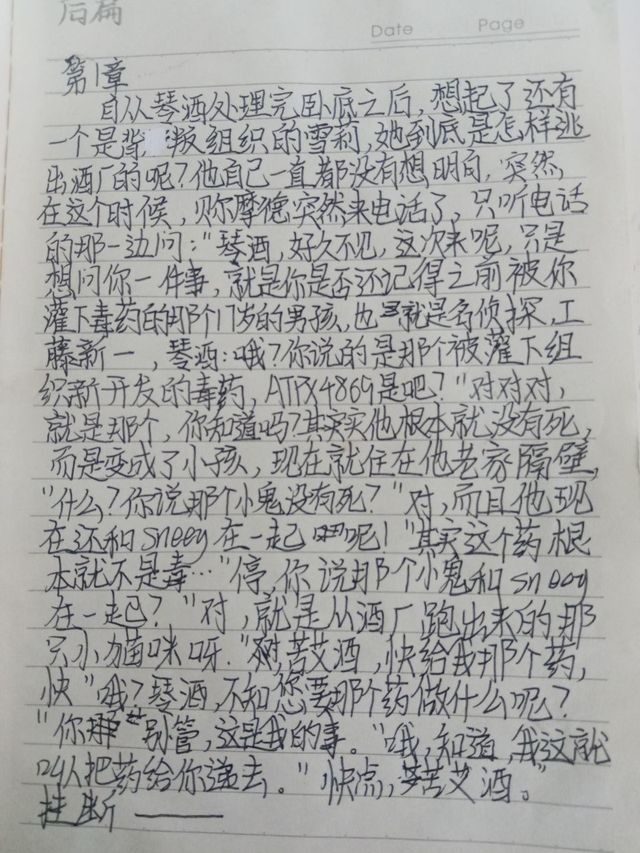 后篇
Date Page
第1章
自从琴酒处理完卧底之后，想起了还有
一个是背叛组织的雪莉，她到底是怎样逃
出酒厂的呢？他自己一直都没有想明白，突然，
在这个时候，贝尔摩德突然来电话了，只听电话
的那一边问："琴酒，好久不见，这次来呢，只是
想问你一件事，就是你是否还记得之前被你
灌下毒药的那个17岁的男孩，也就是名侦探，工
藤新一，琴酒：哦？你说的是那个被灌下组
织新开发的毒药，ATPX4869是吧？"对对对，
就是那个，你知道吗？其实他根本就没有死，
而是变成了小孩，现在就住在他老家隔壁，
"什么？你说那个小鬼没有死？"对，而且他现
在还和sneey在一起呢！"其实这个药根
本就不是毒…"停，你说那个小鬼和sneey
在一起？"对，就是从酒厂跑出来的那
只小猫咪呀."苦艾酒，快给我那个药，
快"哦？琴酒，不知您要那个药做什么呢？
"你别管，这是我的事。"哦，知道，我这就
叫人把药给你递去。"快点，苦艾酒。"
挂断——